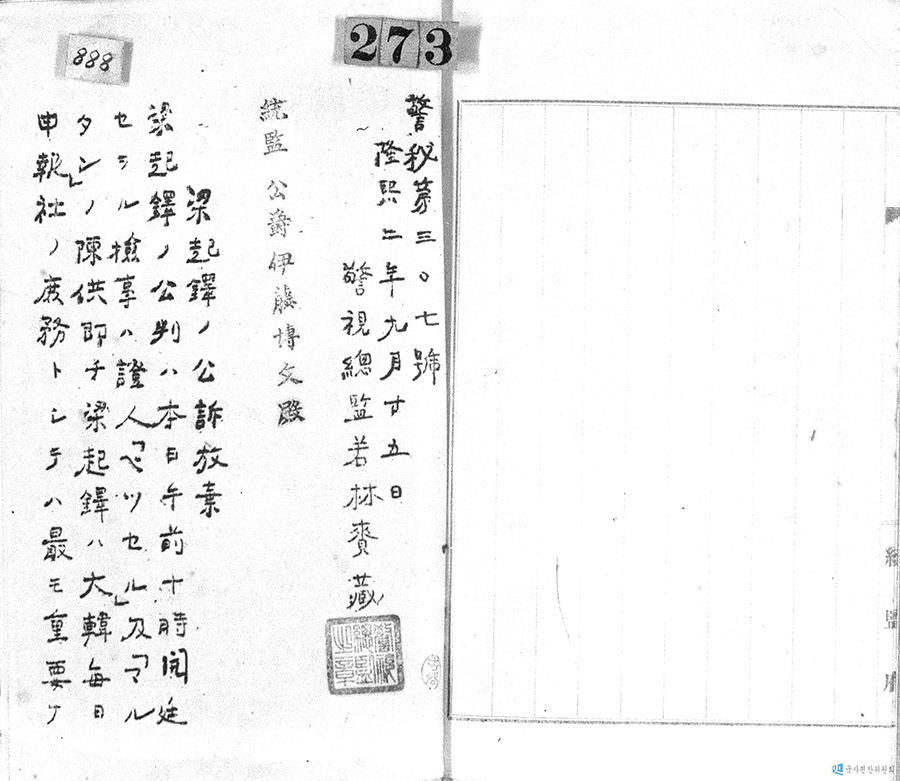 273
888
警秘第三〇七號
隆熙二年九月廿五日
警視總監若林賚藏
警視總監之章
統監 公爵伊藤博文殿
梁起鐸ノ公訴放棄
梁起鐸ノ公判ハ本日午前十時開廷
セラル檢事ハ證人「ベツセル」及「マル
タン」ノ陳供即チ梁起鐸ハ大韓每日
申報社ノ庶務トシテハ最モ重要ナ
統監府
국사편찬위원회